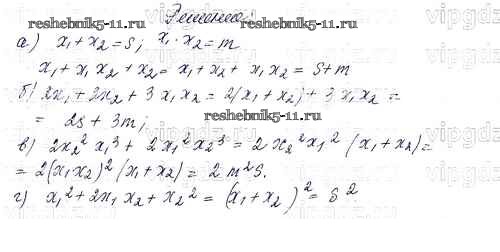 Решение.
reshebnik5-11.ru reshebnik5-11.ru
а) x₁ + x₂ = s; x₁ · x₂ = m
x₁ + x₁x₂ + x₂ = x₁ + x₂ + x₁x₂ = s + m
б) 2x₁ + 2x₂ + 3x₁x₂ = 2(x₁ + x₂) + 3x₁x₂ =
= 2s + 3m;
reshebnik5-11.ru
в) 2x₂²x₁³ + 2x₁²x₂³ = 2x₂²x₁² (x₁ + x₂) =
= 2(x₁x₂)² (x₁ + x₂) = 2m²s.
г) x₁² + 2x₁x₂ + x₂² = (x₁ + x₂)² = s².